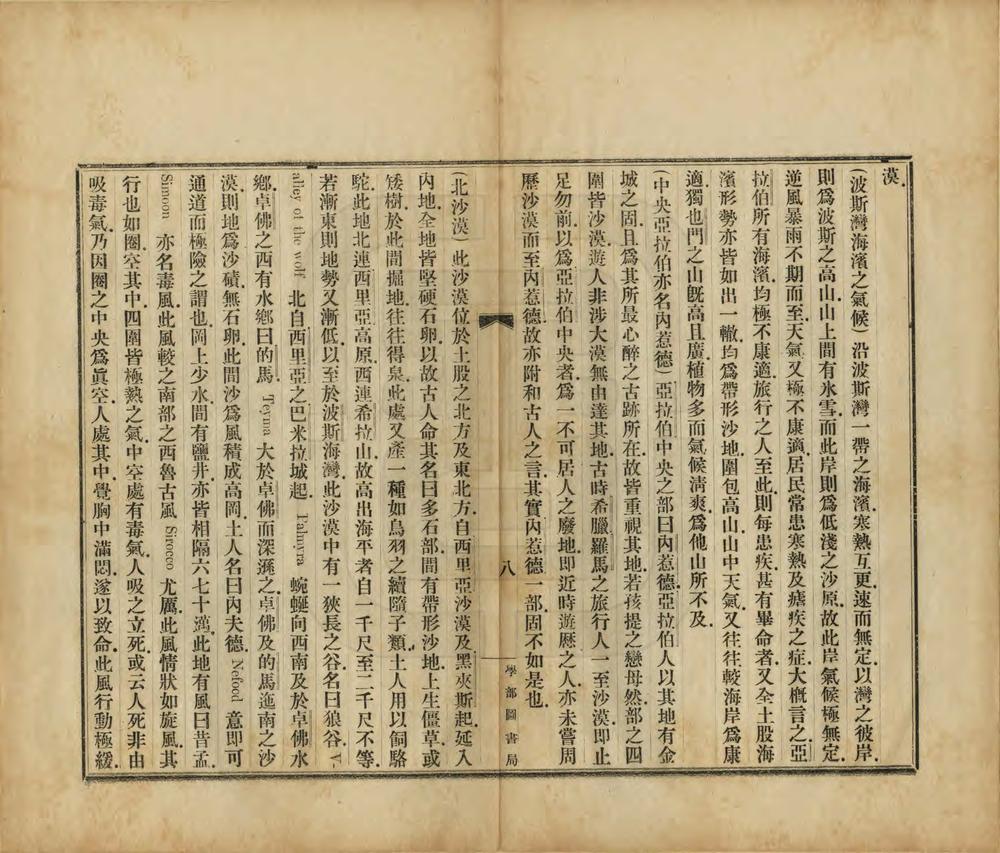 漠.
(波斯灣海濱之氣候)沿波斯灣一帶之海濱.寒熱互更.速而無定.以灣之彼岸.
則爲波斯之高山.山上間有氷雪.而此岸則爲低淺之沙原.故此岸氣候極無定.
逆風暴雨不期而至.天氣又極不康適.居民常患寒熱及瘧疾之症.大槪言之.亞
拉伯所有海濱.均極不康適.旅行之人至此.則每患疾.甚有畢命者.又全土股海
濱形勢.亦皆如出一轍.均爲帶形沙地.圍包高山.山中天氣.又往往較海岸爲康
適.獨也門之山.旣高且廣.植物多而氣候清爽.爲他山所不及.
(中央亞拉伯亦名內惹德)亞拉伯中央之部曰內惹德.亞拉伯人以其地有金
城之固.且爲其所最心醉之古跡所在.故皆重視其地.若孩提之戀母然.部之四
圍皆沙漠.遊人非涉大漠無由達其地.古時希臘羅馬之旅行人.一至沙漠.即止
足勿前.以爲亞拉伯中央者.爲一不可居人之廢地.即近時遊歷之人.亦未嘗周
歷沙漠而至內惹德.故亦附和古人之言.其實內惹德一部.固不如是也.
八
學部圖書局
(北沙漠)此沙漠位於土股之北方及東北方.自西里亞沙漠及黑夾斯起.延入
內地.全地皆堅硬石卵.以故古人命其名曰多石部.間有帶形沙地.上生僵草.或
矮樹.於此間掘地.往往得泉.此處又產一種如鳥羽之續隨子類.土人用以飼駱
駝.此地北連西里亞高原.西連希拉山.故高出海平者.自一千尺至二千尺不等.
若漸東則地勢又漸低.以至於波斯海灣.此沙漠中有一狹長之谷.名曰狼谷. V-
alley of the wolf 北自西里亞之巴米拉城起. Palmyra 蜿蜒向西南.及於卓佛水
鄉.卓佛之西有水鄉曰的馬. Teyma 大於卓佛而深遜之.卓佛及的馬迤南之沙
漠.則地爲沙磧.無石卵.此間沙爲風積成高岡.土人名曰內夫德. Nefood 意即可
通道而極險之謂也.岡上少水.間有鹽井.亦皆相隔六七十邁.此地有風曰昔孟.
Simoon 亦名毒風.此風較之南部之西魯古風 Sirocco 尤厲.此風情狀如旋風.其
行也如圈.空其中.四圍皆極熱之氣.中空處有毒氣.人吸之立死.或云人死非由
吸毒氣.乃因圈之中央爲眞空.人處其中.覺胸中滿悶.遂以致命.此風行動極緩.